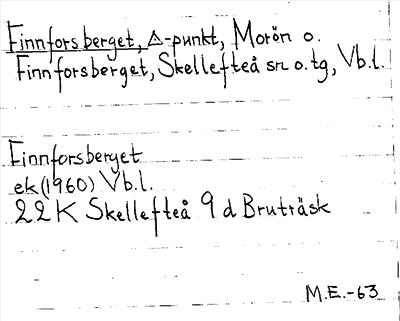 Finnforsberget, △-punkt, Morön o.
Finnforsberget, Skellefteå sn o. tg, Vb.l.
Finnforsberget
ek (1960) Vb.l.
22 K Skellefteå 9 d Bruträsk
M.E.-63